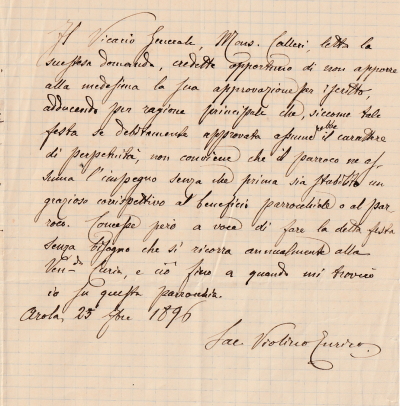 Il Vicario Generale, Mons. Calleri, letta la
suestesa domanda, credette opportuno di non apporre
alla medesima la sua approvazione per iscritto,
adducendo per ragione principale che, siccome tale
festa se debitamente approvata assume il carattere
di perpetuità, non conviene che il parroco ne as-
suma l'impegno senza che prima sia stabilito un
grazioso corrispettivo al beneficio parrocchiale o al par-
roco. Concesse però a voce di fare la detta festa
senza bisogno che si ricorra annualmente alla
Ven.da Curia, e ciò fino a quando mi troverò
io in questa parrocchia.
Arola, 25 1896
Sac. Violino Enrico.